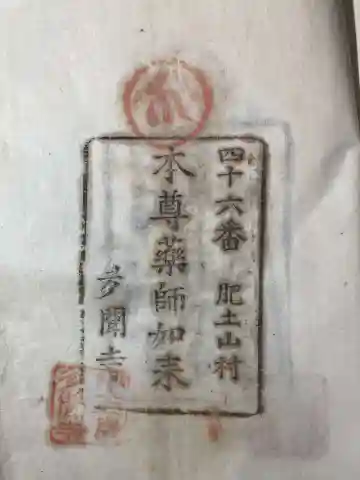 四十六番 肥土山村
本尊藥師如来
多聞寺